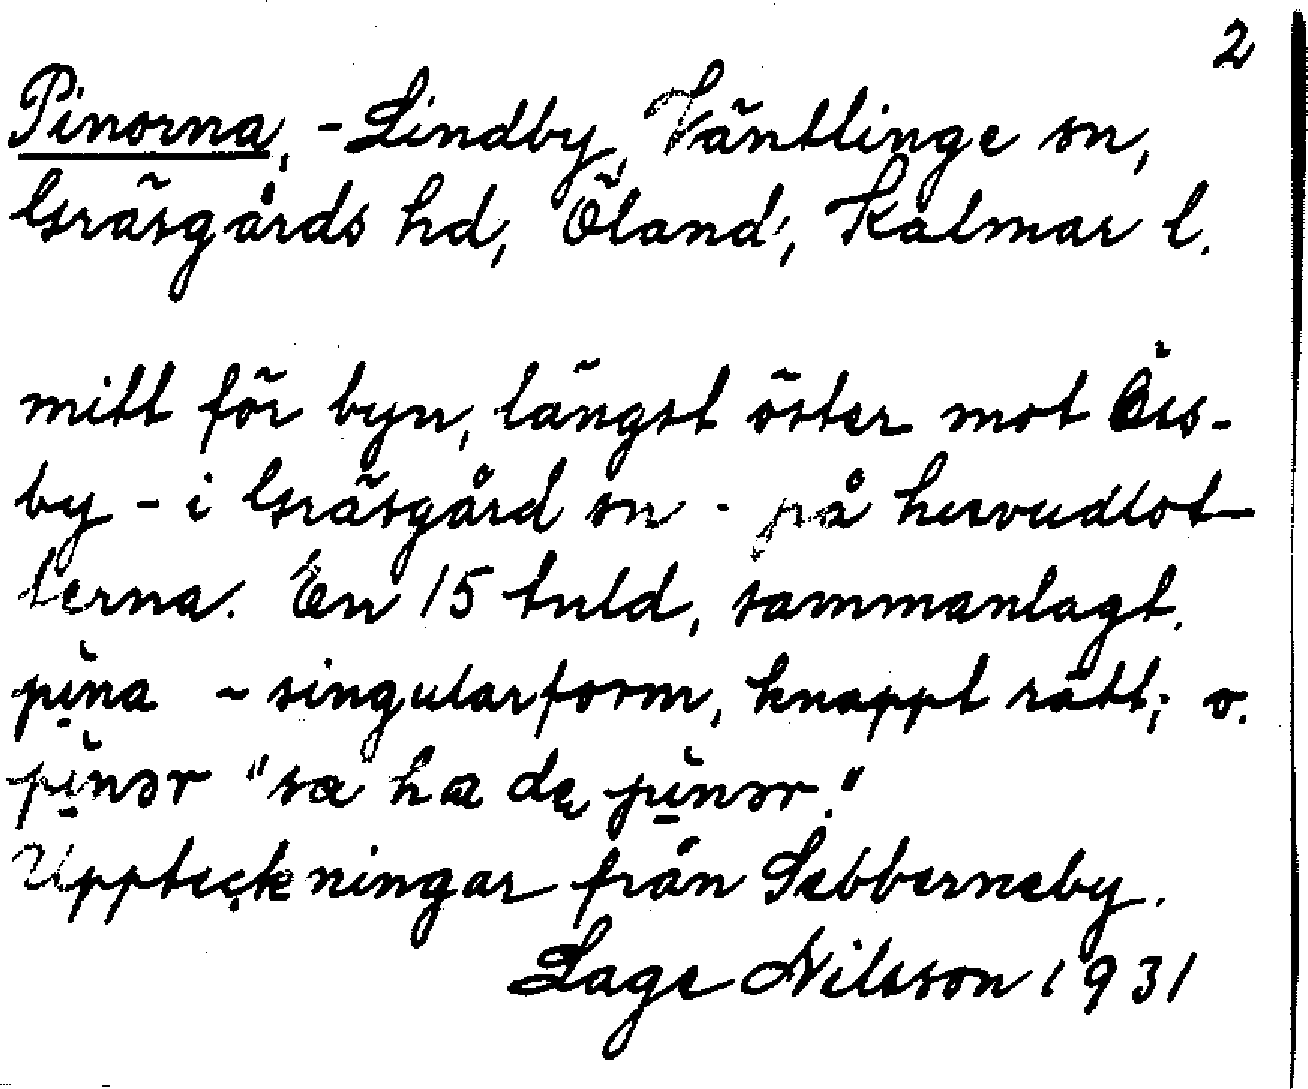 2
Pinorna, - Lindby, Väntlinge sn,
Gräsgårds hd, Öland, Kalmar l.
mitt för byn, längst öster mot Eis-
by - i Gräsgård sn - på huvudlot-
terna. En 15 tnld, sammanlagt.
pìna - singularform, knappt rätt; o.
pìnər "sɑ hɑ de pìnər."
Uppteckningar från Sebberneby.
Lage Nilsson 1931